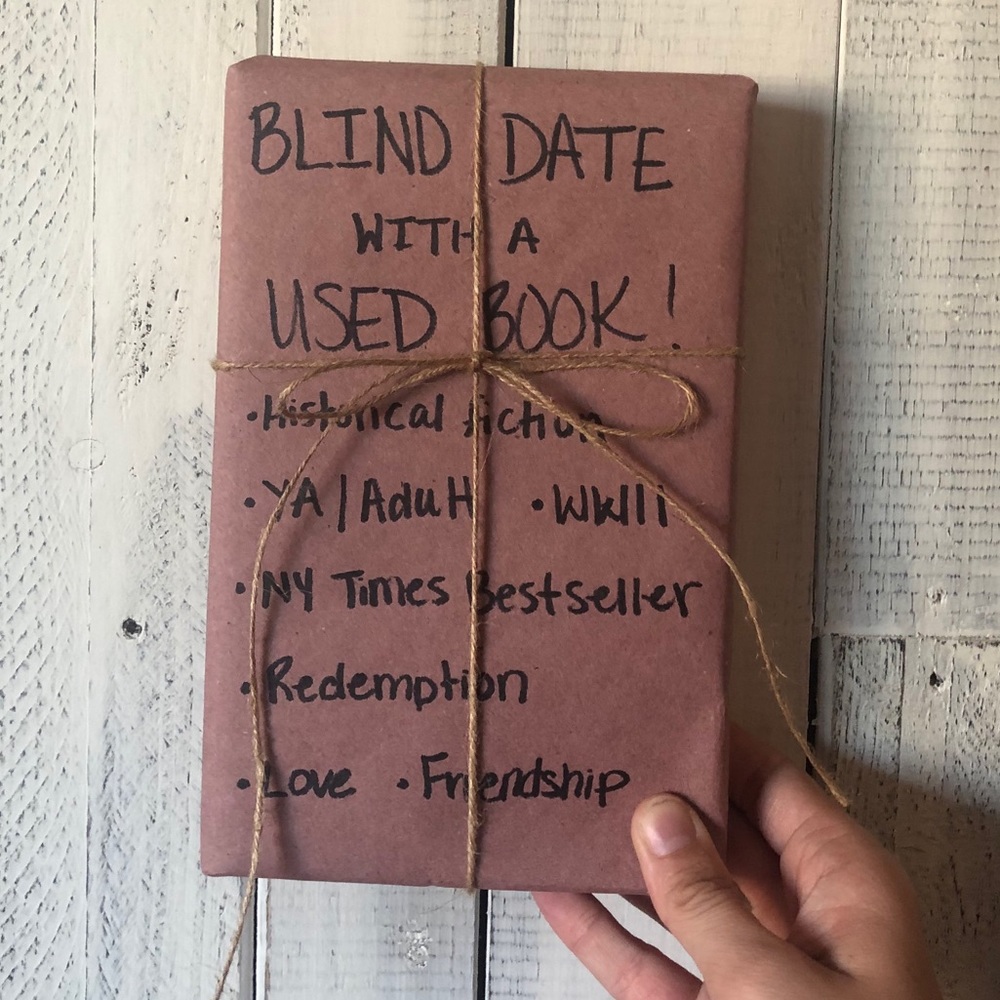 BLIND DATE
WITH A
USED BOOK!
•Historical fiction
•YA/Adult •WWII
•NY Times Bestseller
•Redemption
•Love •Friendship